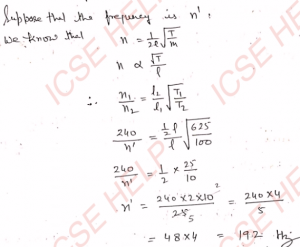 Suppose that the frequency is n'.
We know that
n = 1/2l √T/m
n ∝ √T/l
∴ n₁/n₂ = l₂/l₁ √T₁/T₂
240/n' = ½l/l √625/100
240/n' = 1/2 × 25/10
n' = 240×2×10²/25₅ = 240×4/5
= 48×4 = 192 Hz
ICSE HELP
ICSE HELP
ICSE HELP